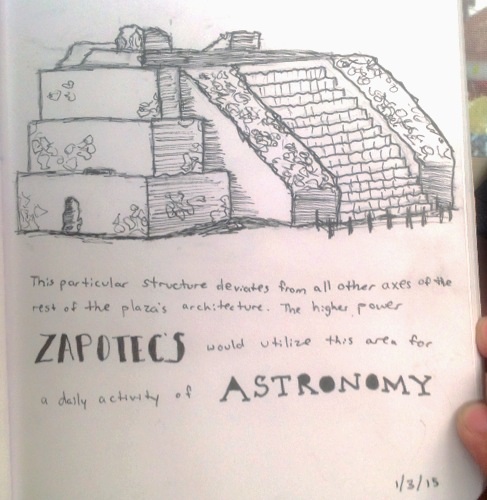 This particular structure deviates from all other axes of the
rest of the plaza's architecture. The higher power
ZAPOTEC'S would utilize this area for
a daily activity of ASTRONOMY
1/3/15